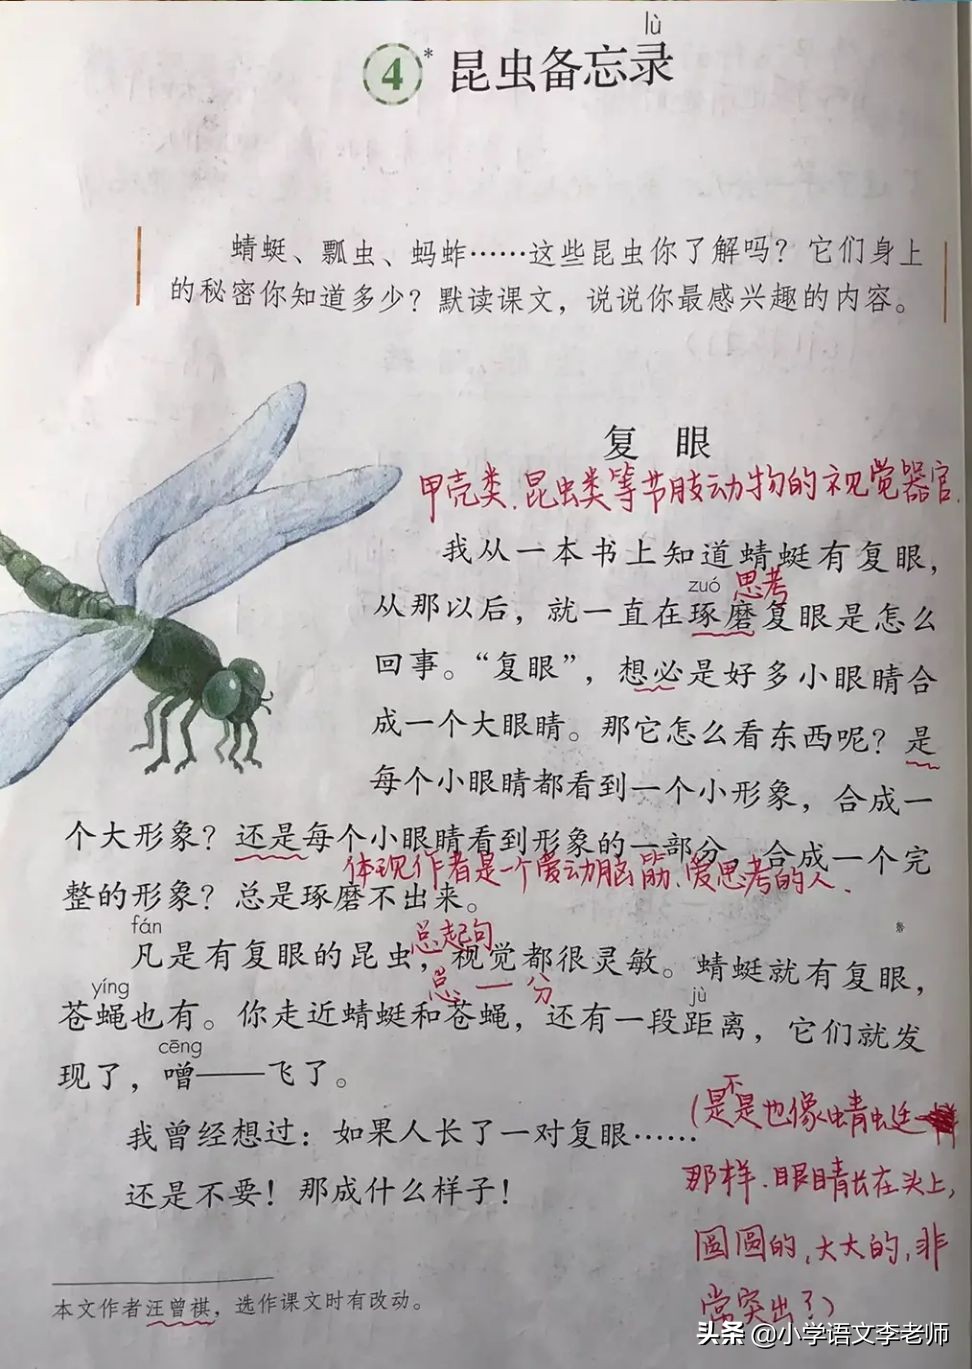 lù
4* 昆虫备忘录
蜻蜓、瓢虫、蚂蚱……这些昆虫你了解吗？它们身上
的秘密你知道多少？默读课文，说说你最感兴趣的内容。
复 眼
甲壳类、昆虫类等节肢动物的视觉器官.
我从一本书上知道蜻蜓有复眼，
zuó 思考
从那以后，就一直在琢磨复眼是怎么
回事。“复眼”，想必是好多小眼睛合
成一个大眼睛。那它怎么看东西呢？是
每个小眼睛都看到一个小形象，合成一
个大形象？还是每个小眼睛看到形象的一部分，合成一个完
体现作者是一个爱动脑筋、爱思考的人.
整的形象？总是琢磨不出来。
fán 总起句
凡是有复眼的昆虫，视觉都很灵敏。蜻蜓就有复眼，
yíng 总一分 jù
苍蝇也有。你走近蜻蜓和苍蝇，还有一段距离，它们就发
cēng
现了，噌——飞了。
我曾经想过：如果人长了一对复眼……
还是不要！那成什么样子！
(是不是也像蜻蜓
那样.眼睛长在头上,
圆圆的,大大的,非
常突出?)
本文作者汪曾祺，选作课文时有改动。
头条 @小学语文李老师